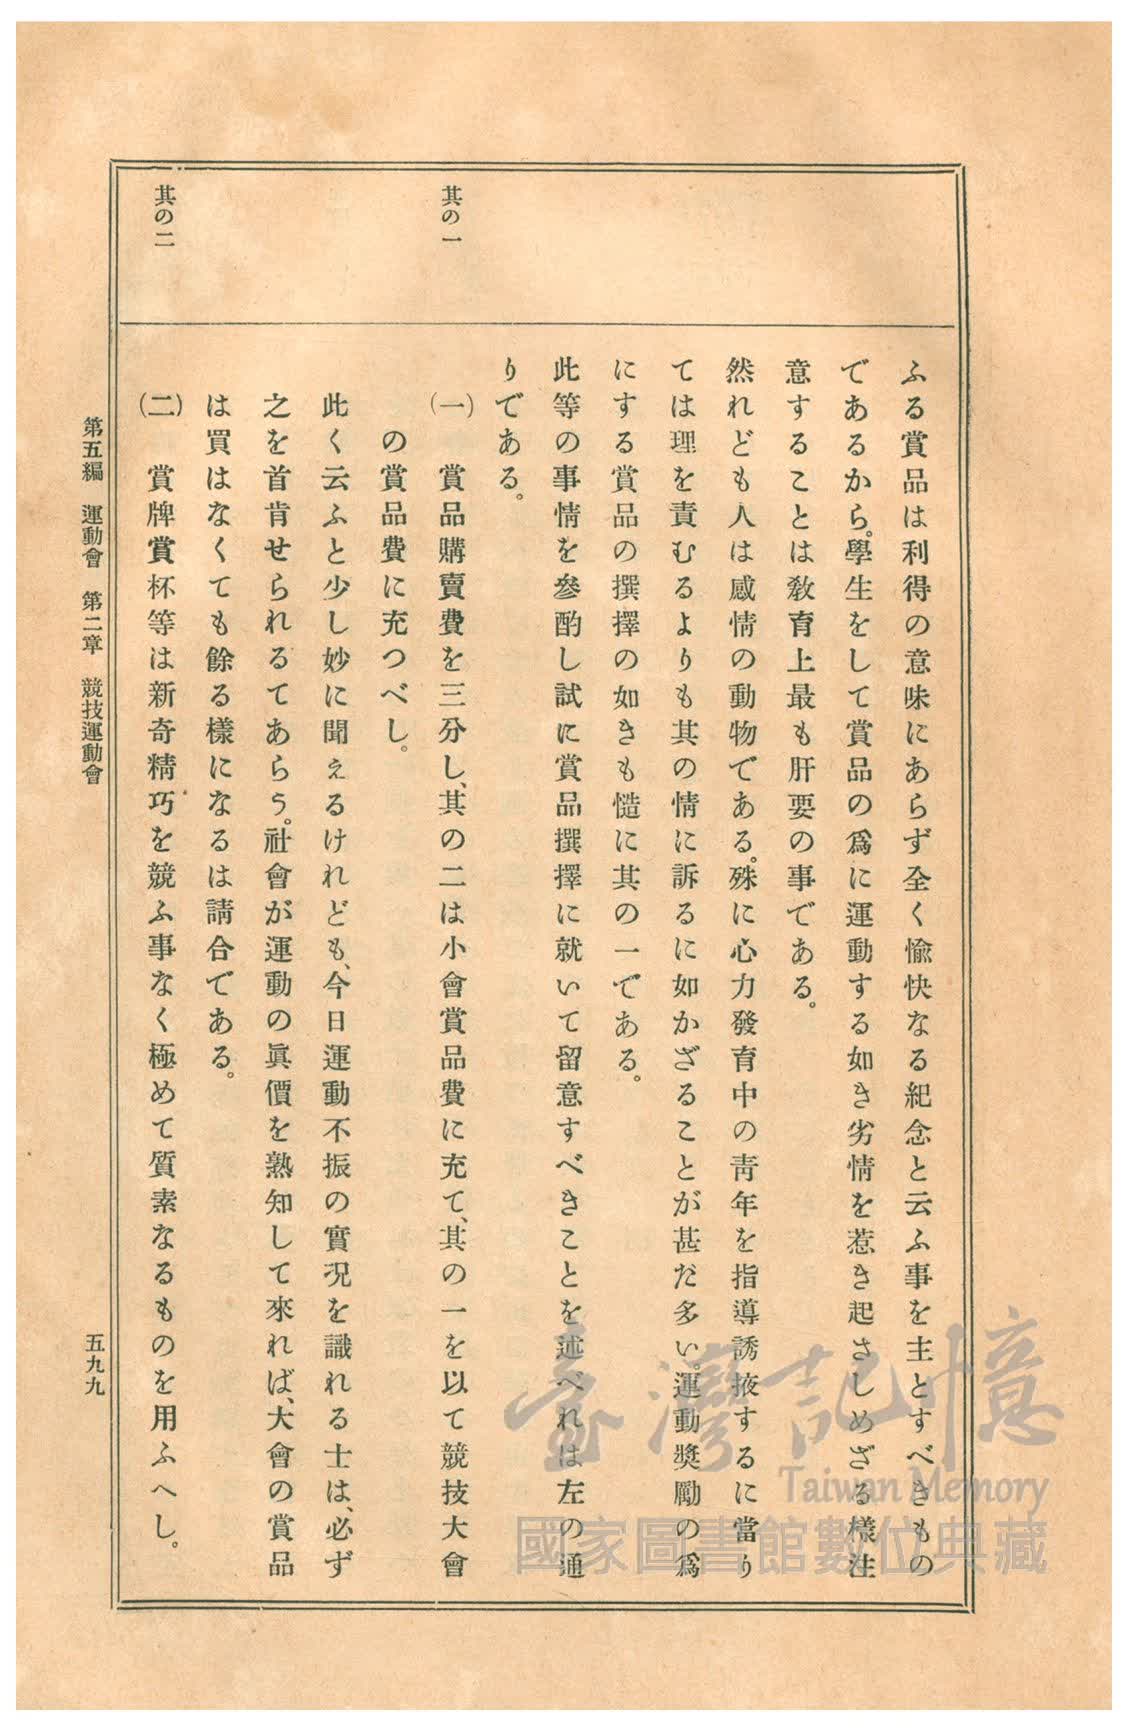 ふる賞品は利得の意味にあらず全く愉快なる紀念と云ふ事を主とすべきもの
であるから。學生をして賞品の爲に運動する如き劣情を惹き起さしめざる樣注
意することは敎育上最も肝要の事である。
然れども人は感情の動物である。殊に心力發育中の靑年を指導誘掖するに當り
ては理を責むるよりも其の情に訴るに如かざることが甚だ多い。運動奬勵の爲
にする賞品の撰擇の如きも慥に其の一である。
此等の事情を參酌し試に賞品撰擇に就いて留意すべきことを述べれは左の通
りである。
其の一
(一) 賞品購賣費を三分し、其の二は小會賞品費に充て、其の一を以て競技大會
の賞品費に充つべし。
此く云ふと少し妙に聞えるけれども、今日運動不振の實况を識れる士は、必ず
之を首肯せられるてあらう。社會が運動の眞價を熟知して來れば、大會の賞品
は買はなくても餘る樣になるは請合である。
其の二
(二) 賞牌賞杯等は新奇精巧を競ふ事なく極めて質素なるものを用ふへし。
第五編 運動會 第二章 競技運動會
五九九
臺灣記憶
Taiwan Memory
國家圖書館數位典藏